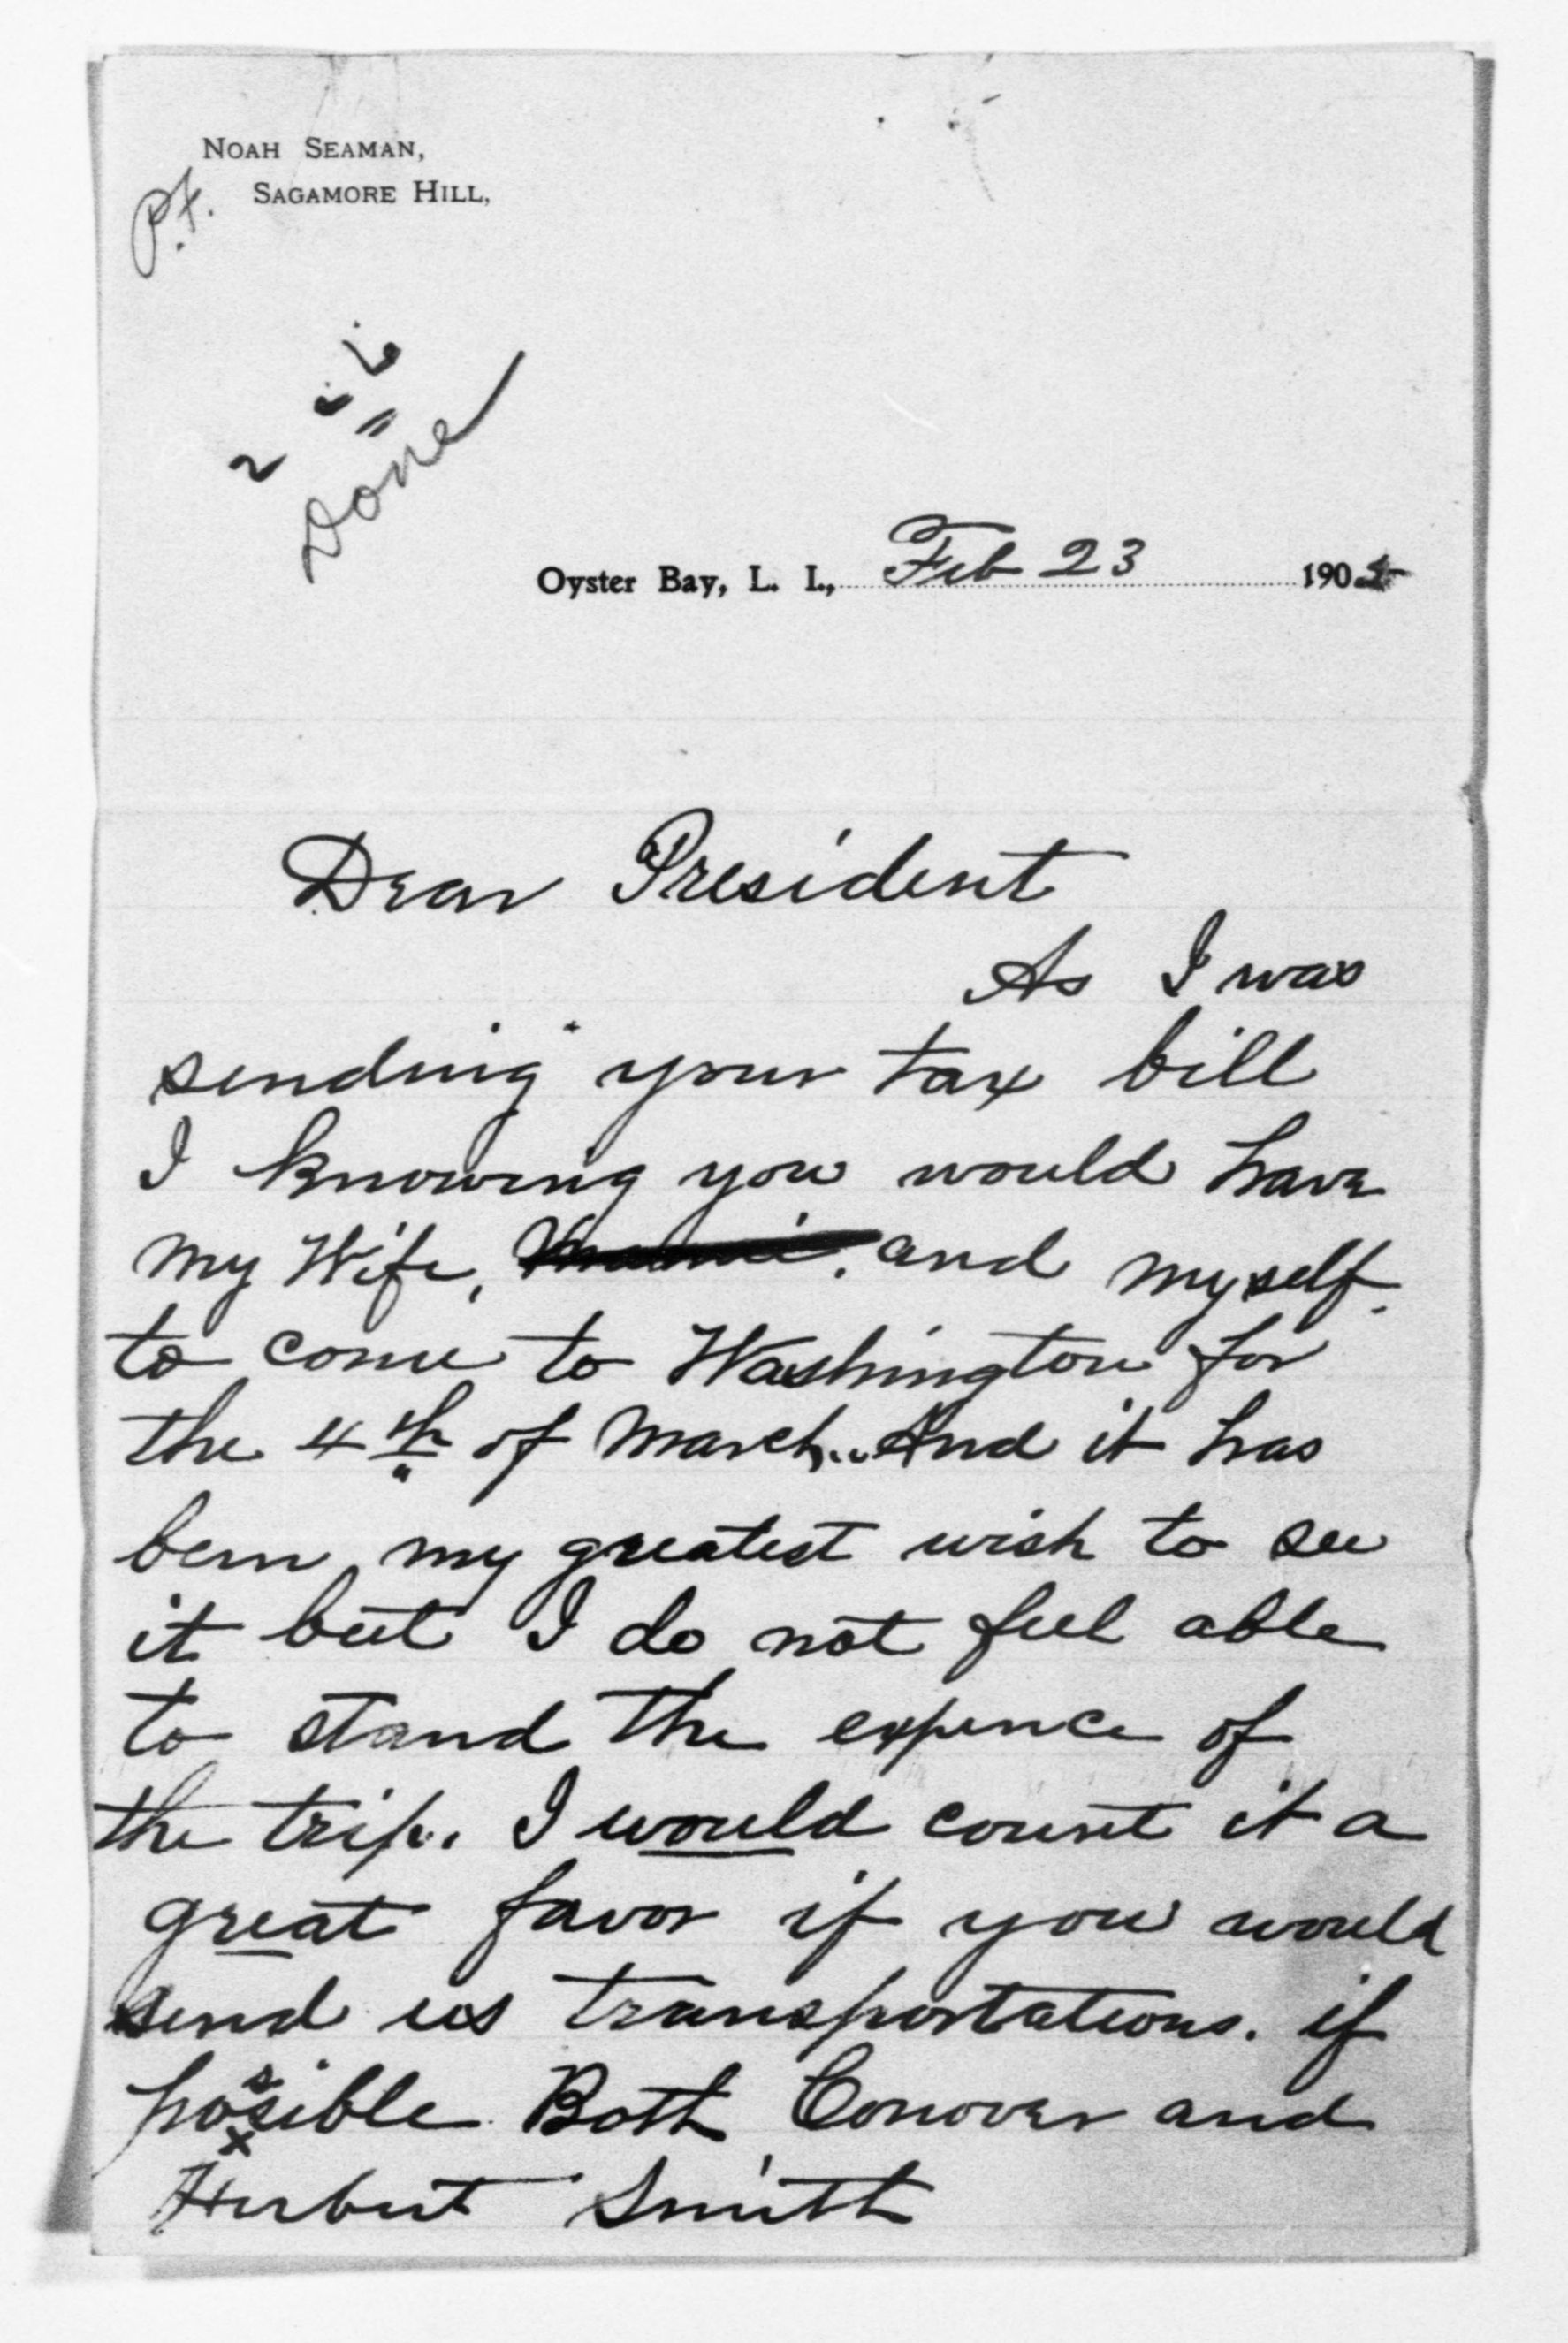 NOAH SEAMAN,
SAGAMORE HILL,
P.F.
Done
Oyster Bay, L. I., Feb 23 1905
Dear President
As I was
sending your tax bill
I knowing you would have
my Wife, and myself.
to come to Washington for
the 4th of March... And it has
been my greatest wish to see
it but I do not feel able
to stand the expence of
the trip. I would count it a
great favor if you would
send us transportations. if
possible Both Conover and
Herbert Smith